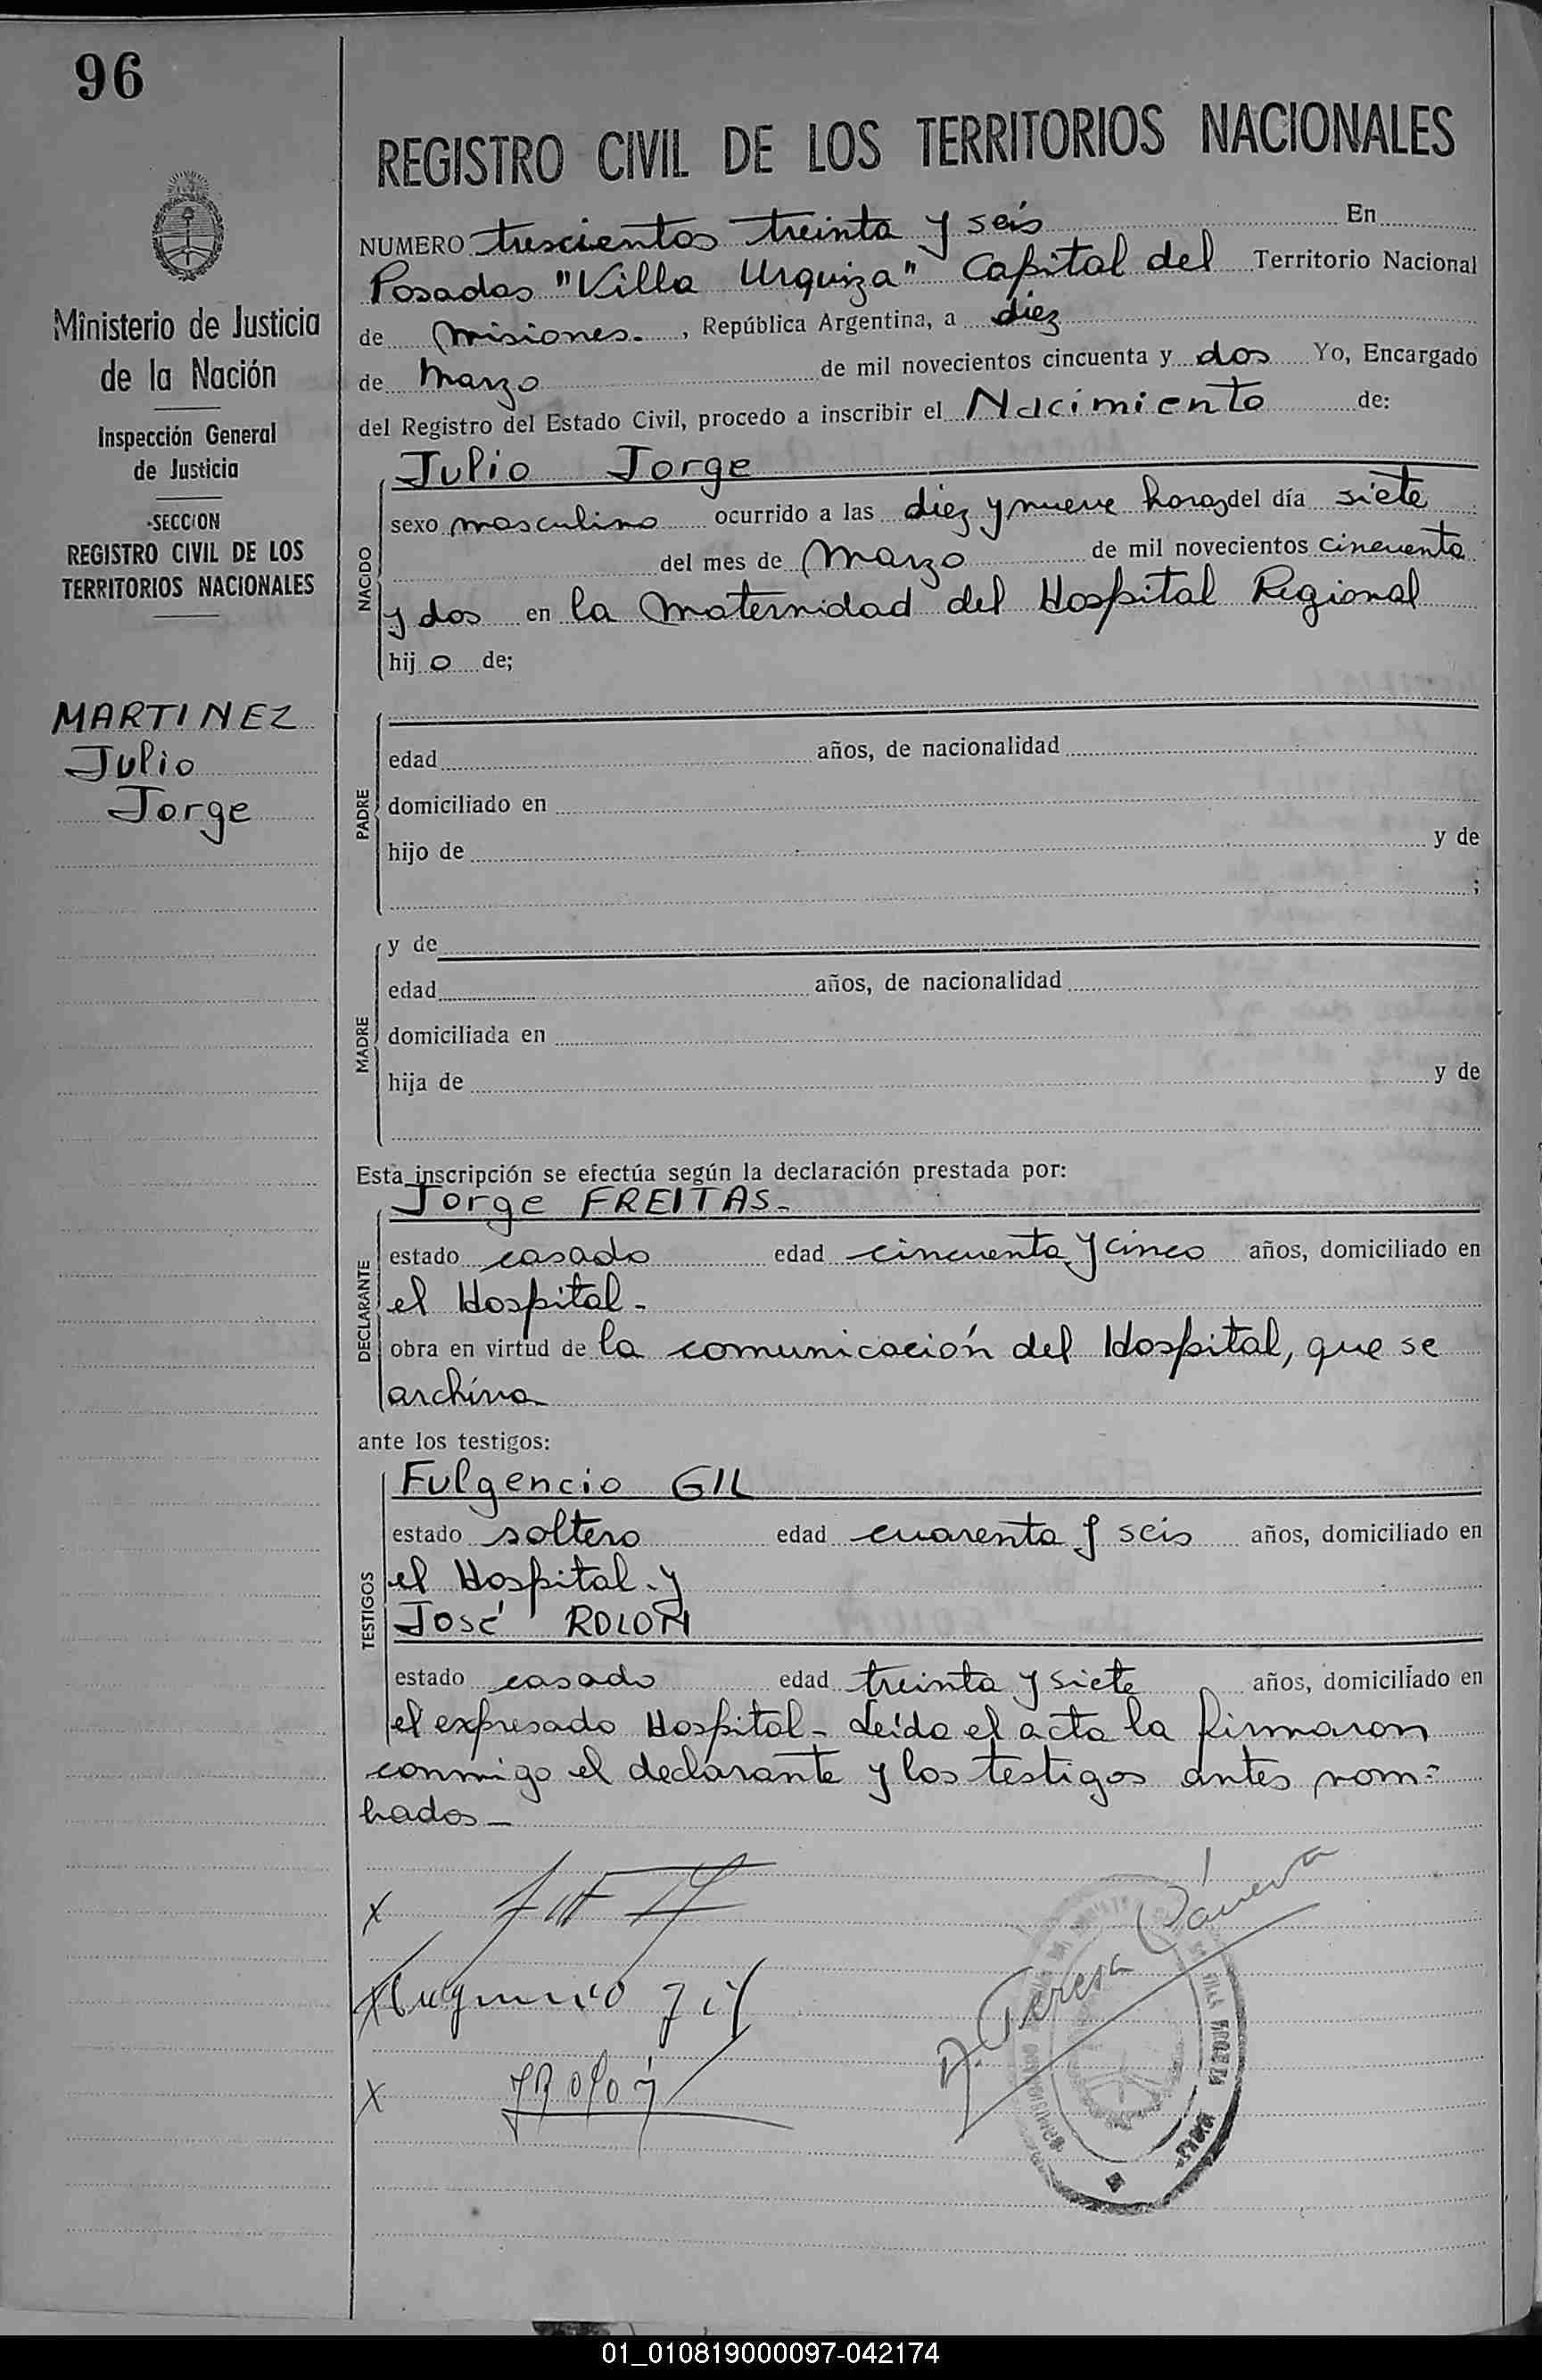 96
REGISTRO CIVIL DE LOS TERRITORIOS NACIONALES
Ministerio de Justicia
de la Nación
Inspección General
de Justicia
SECCION
REGISTRO CIVIL DE LOS
TERRITORIOS NACIONALES
MARTINEZ
Julio
Jorge
NUMERO trescientos treinta y seis En
Posadas "Villa Urquiza" Capital del Territorio Nacional
de Misiones. , República Argentina, a diez
de Marzo de mil novecientos cincuenta y dos Yo, Encargado
del Registro del Estado Civil, procedo a inscribir el Nacimiento de:
NACIDO
Julio Jorge
sexo masculino ocurrido a las diez y nueve horas del día siete
del mes de Marzo de mil novecientos cincuenta
y dos en la Maternidad del Hospital Regional
hij o de;
PADRE
edad años, de nacionalidad
domiciliado en
hijo de y de
;
MADRE
y de
edad años, de nacionalidad
domiciliada en
hija de y de
Esta inscripción se efectúa según la declaración prestada por:
DECLARANTE
Jorge FREITAS.-
estado casado edad cincuenta y cinco años, domiciliado en
el Hospital-
obra en virtud de la comunicación del Hospital, que se
archiva
ante los testigos:
TESTIGOS
Fulgencio GIL
estado soltero edad cuarenta y seis años, domiciliado en
el Hospital y
José ROLON
estado casado edad treinta y siete años, domiciliado en
el expresado Hospital- Leída el acta la firmaron
conmigo el declarante y los testigos antes nom=
brados-
x
Fulgencio Gil
x JRolón
Teresa
01_010819000097-042174